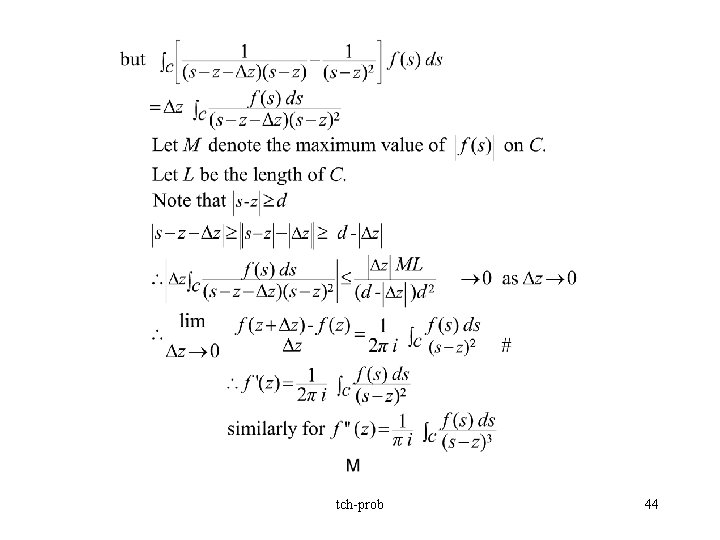 but ∫C[1/((s−z−Δz)(s−z)) − 1/(s−z)²] f(s) ds
=Δz ∫C f(s) ds/((s−z−Δz)(s−z)²)
Let M denote the maximum value of |f(s)| on C.
Let L be the length of C.
Note that |s-z|≥d
|s−z−Δz|≥||s−z|−|Δz||≥ d-|Δz|
∴|Δz∫C f(s) ds/((s−z−Δz)(s−z)²)|≤|Δz|ML/((d-|Δz|)d²) →0 as Δz→0
∴ lim Δz→0 (f(z+Δz)-f(z))/Δz = 1/(2π i) ∫C f(s) ds/(s−z)² #
∴ f'(z)= 1/(2π i) ∫C f(s) ds/(s−z)²
similarly for f"(z)= 1/(π i) ∫C f(s) ds/(s−z)³
M
tch-prob 44